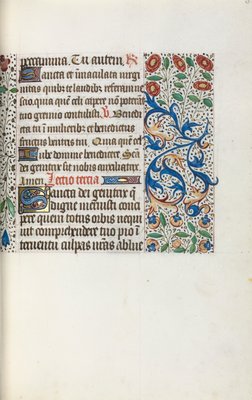 per omnia. Tu autem. R
Sancta et īmaculata virgi
nitas quibꝫ te laudibꝫ referam
nescio. quia quē celi capere nō poterāt
tuo gremio contulisti. V. Benedi
cta tu ī mulieribꝫ et benedictus
fructus ventris tui. Quia quē celi
Iube domne benedicere. Scā
dei genitrix sit nobis auxiliatrix.
Amen. Lectio tercia
Sancta dei genitrix q̄
digne meruisti conci
pere quem totus orbis nequi
uit comprehendere tuo pio ī
teruentu culpas nr̄as ablue